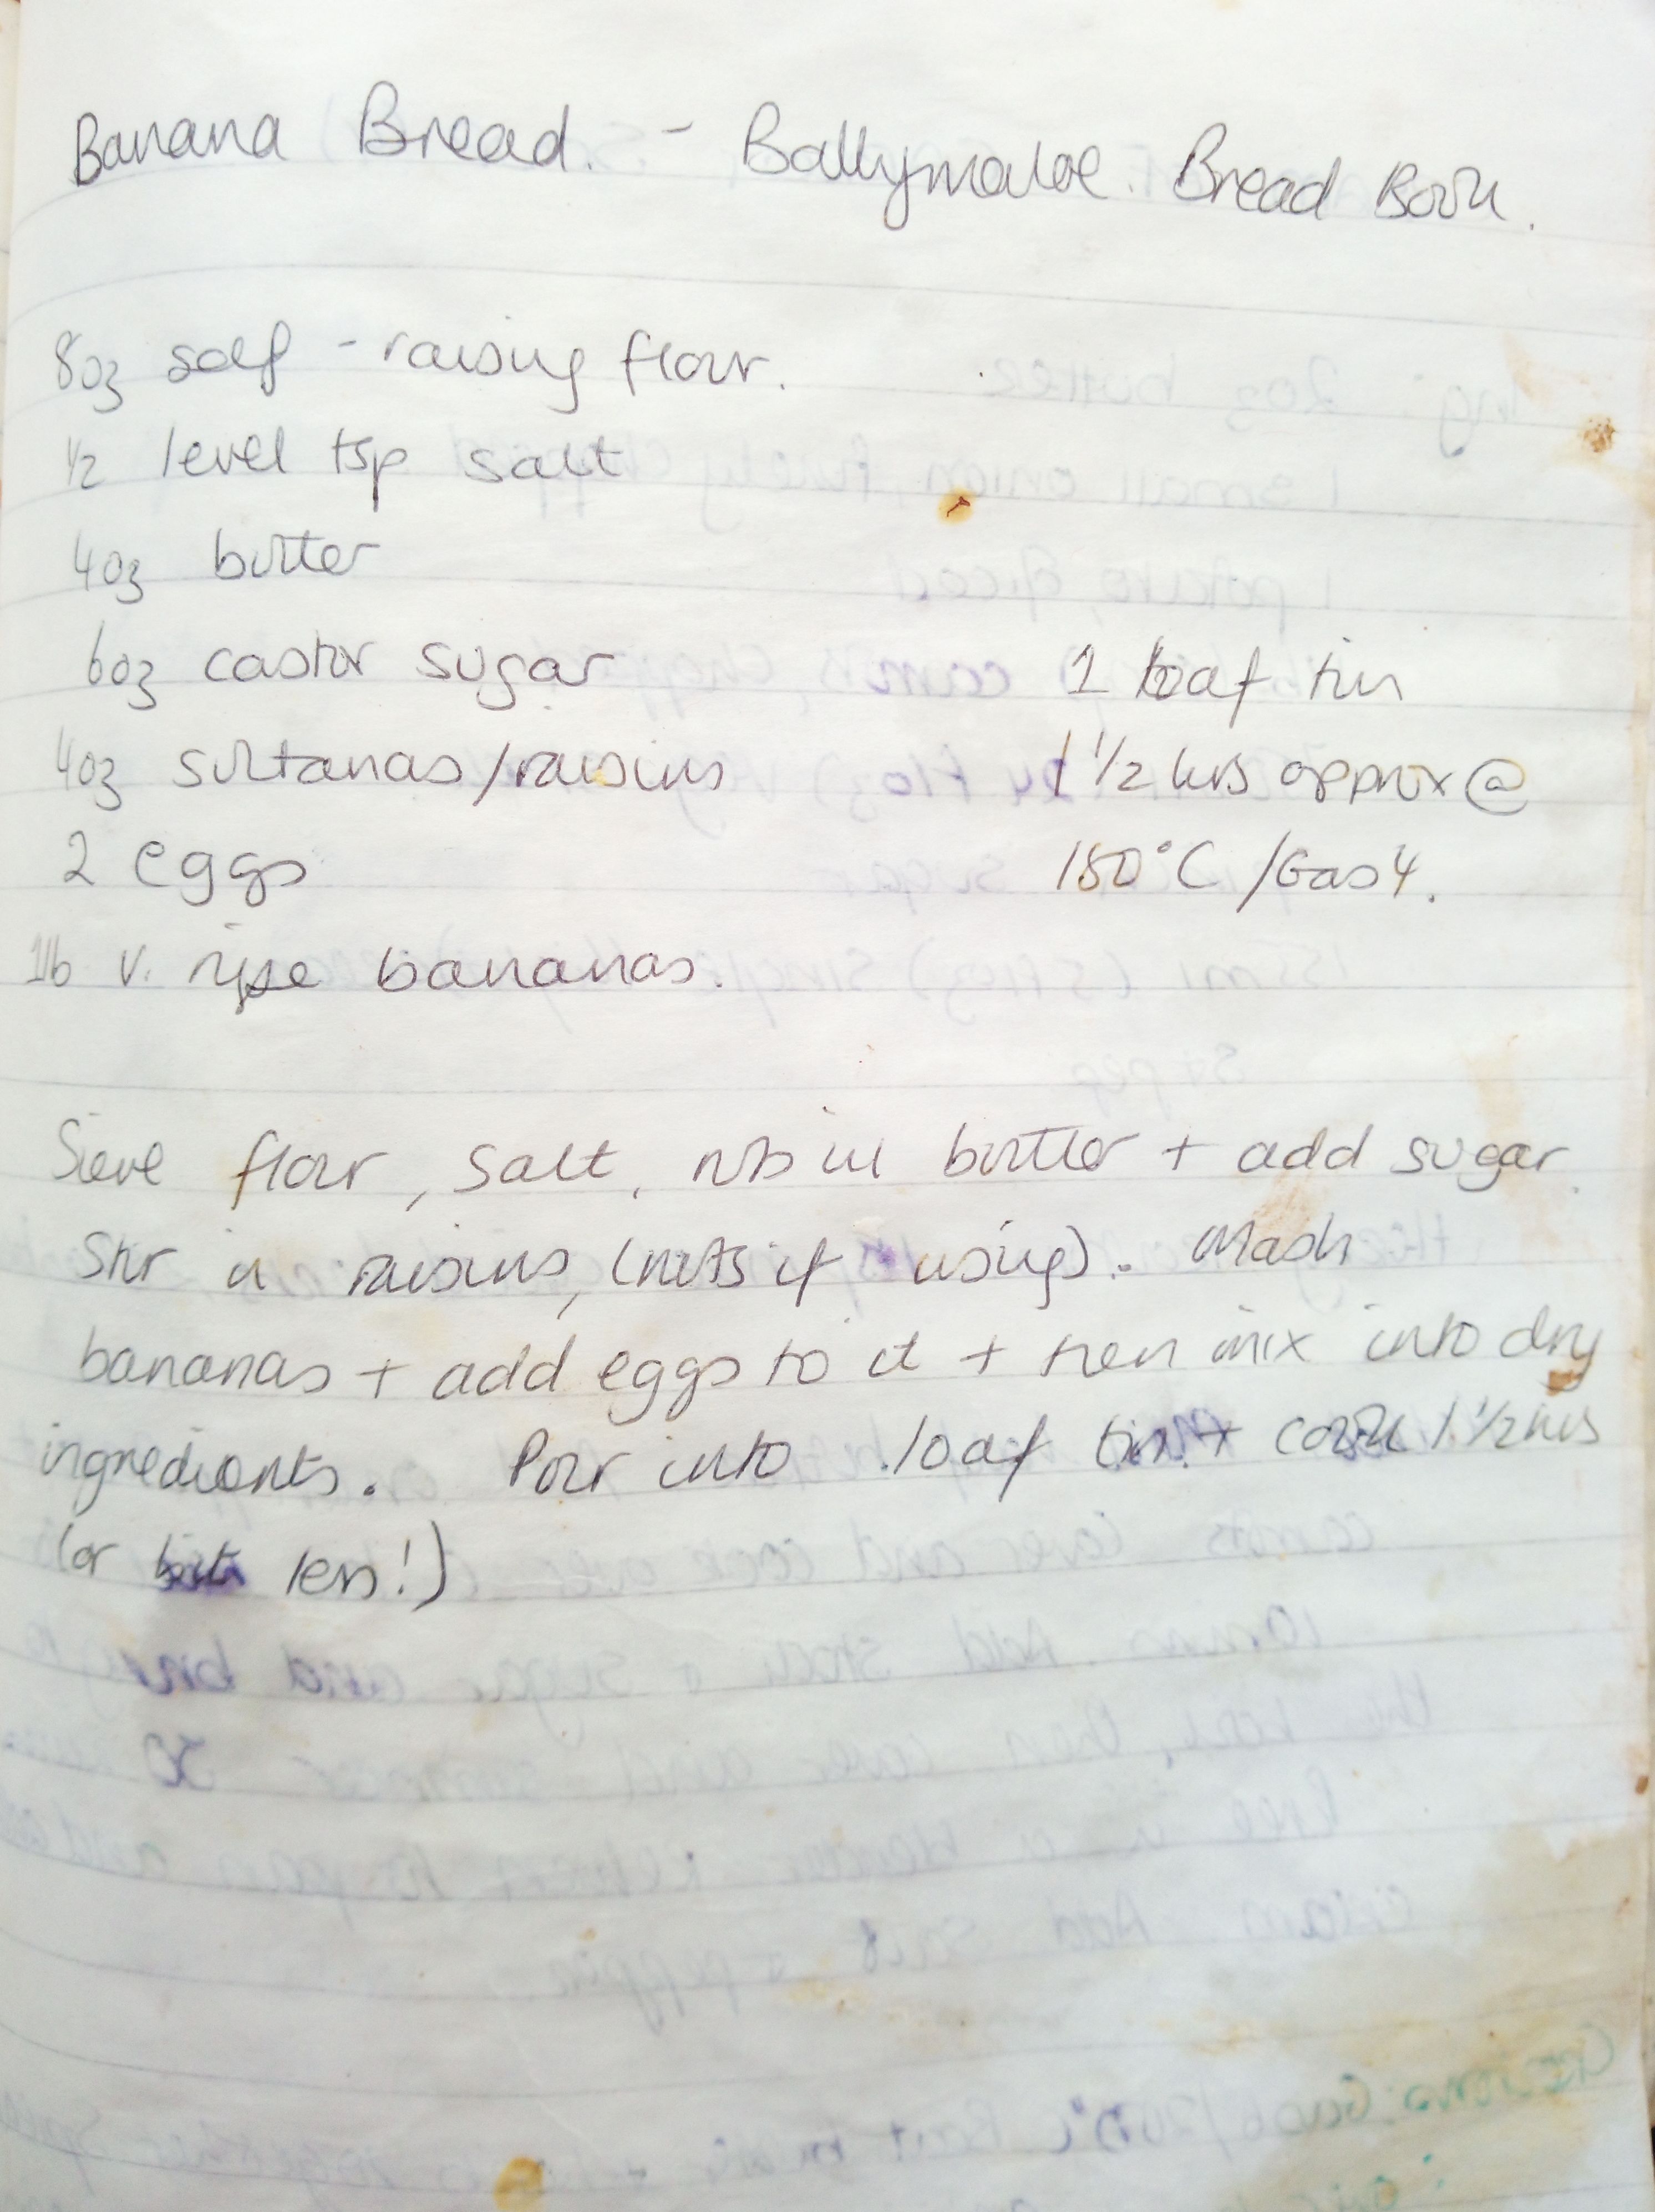 Banana Bread. - Ballymaloe. Bread Book.
8oz self-raising flour.
1/2 level tsp salt
4oz butter
6oz castor sugar
1 loaf tin
4oz sultanas/raisins
1 1/2 hrs approx @
2 eggs
180°C /Gas 4.
1lb v. ripe bananas.
Sieve flour, salt, rub in butter + add sugar.
Stir in raisins, (nuts if using). Mash
bananas + add eggs to it + then mix into dry
ingredients. Pour into loaf tin + cook 1 1/2 hrs
(or bit less!)